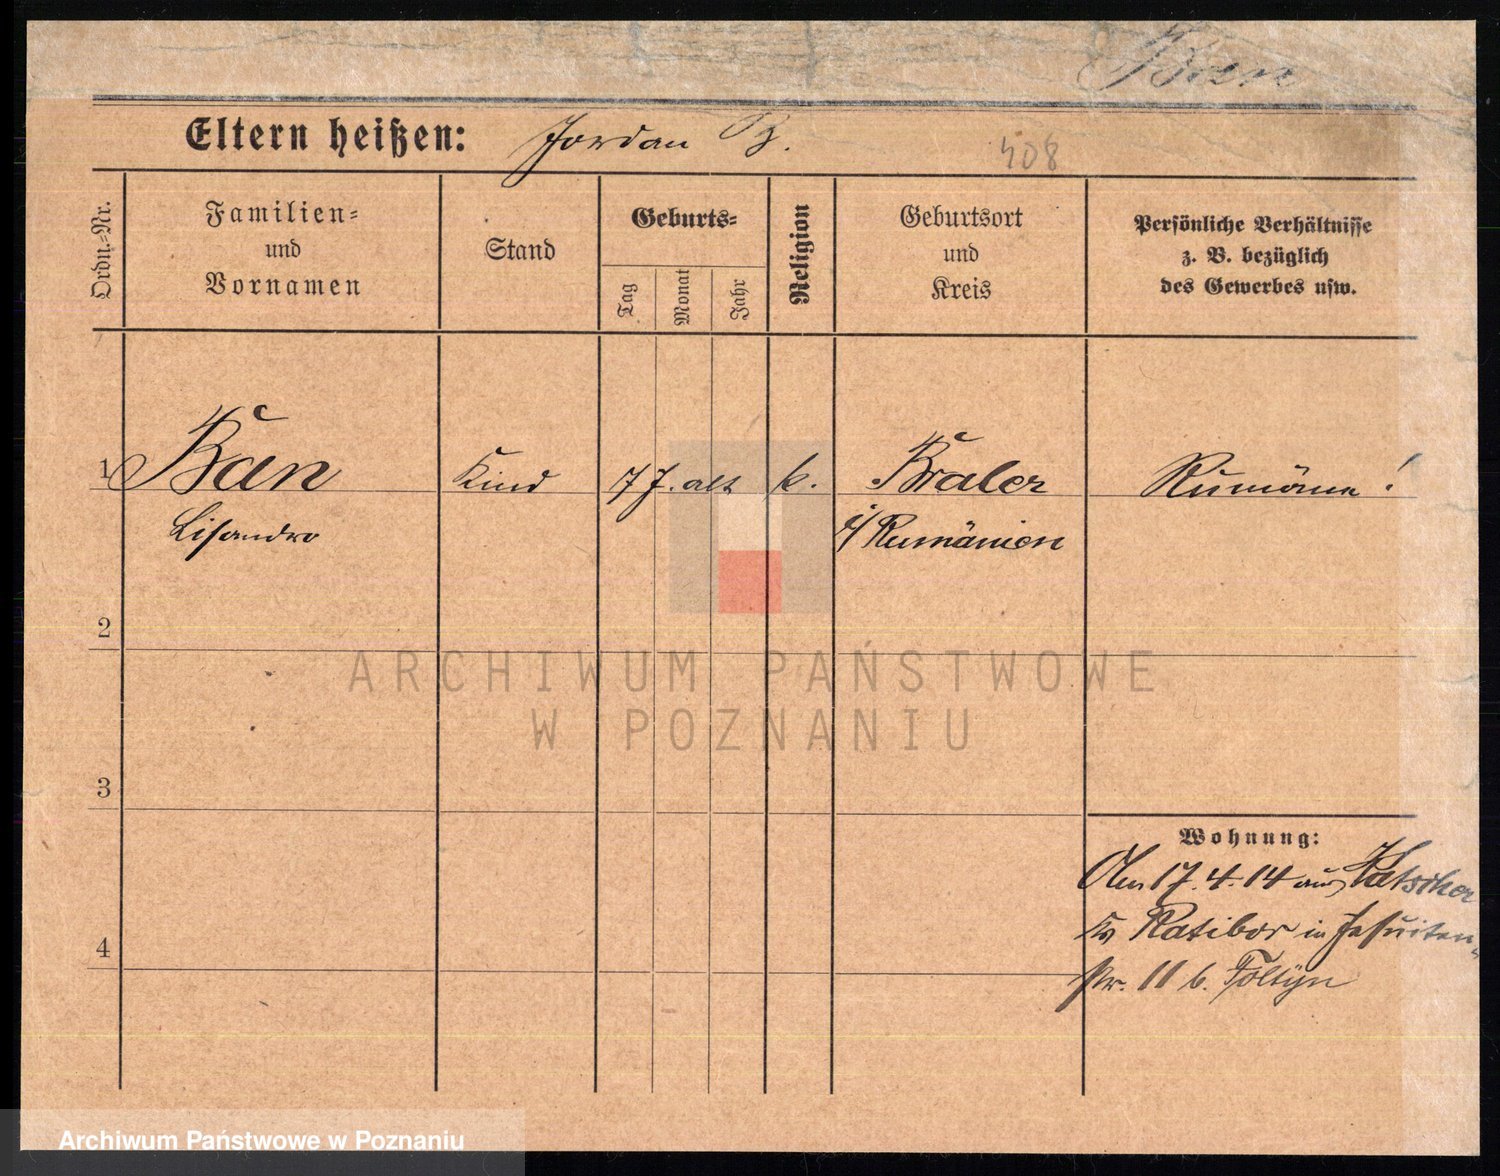 Ban
Eltern heißen: Jordan B.
408
Ordn.-Nr.
Familien-
und
Vornamen
Stand
Geburts-
Tag
Monat
Jahr
Religion
Geburtsort
und
Kreis
Persönliche Verhältnisse
z. B. bezüglich
des Gewerbes usw.
1 Ban Kind 7 J. alt k. Braler Rumäne!
Lisandro i/Rumänien
2
ARCHIWUM PAŃSTWOWE
W POZNANIU
3
Wohnung:
Am 17.4.14 aus Katscher
Kr Ratibor in Jesuiten-
4
str. 11 b. Foltyn
Archiwum Państwowe w Poznaniu